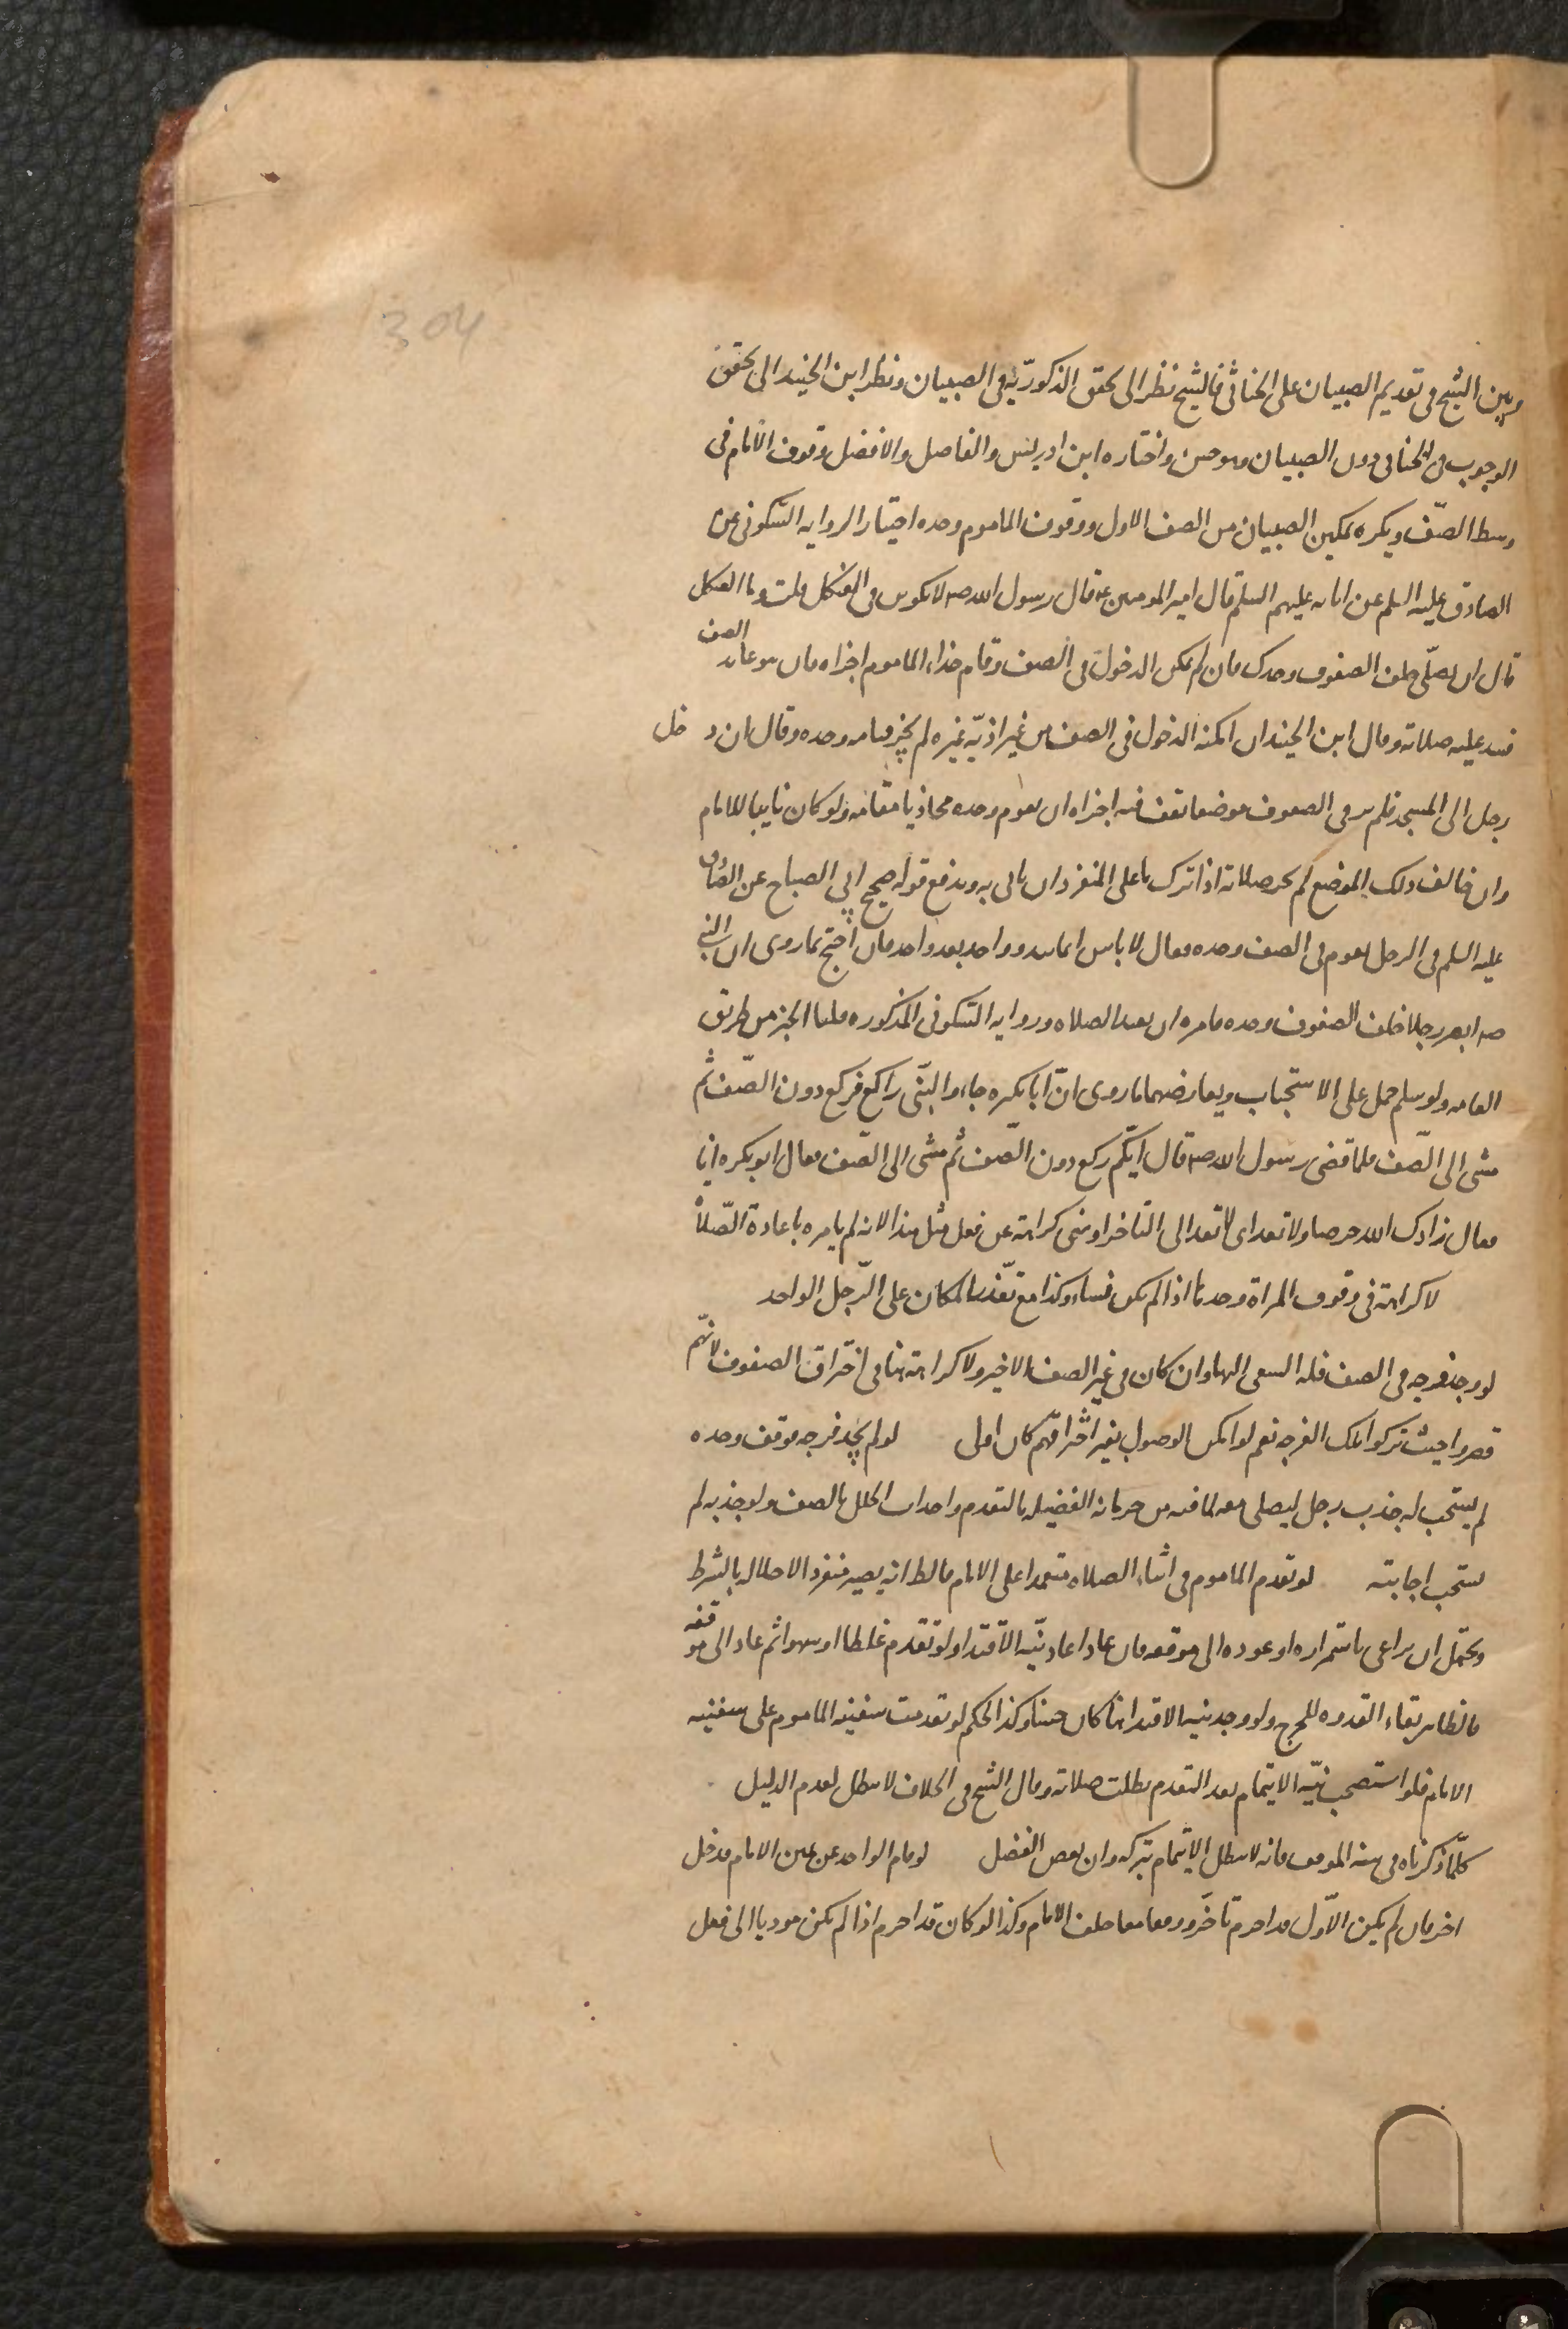 304
وبين الشيخ في تقديم الصبيان على الخناثى فالشيخ نظر الى تحقق الذكوريّة في الصبيان ونظر ابن الجنيد الى تحقق
الوجوب في الخناثى دون الصبيان وهو حسن واختاره ابن ادريس والفاضل والافضل وقوف الامام في
وسط الصّف ويكره تمكين الصبيان من الصف الاول ووقوف الماموم وحده اختيارا لروايه السّكونى عن
الصادق عليه السلم عن ابائه عليهم السلم قال امير المومنين ع قال رسول الله صه لا تكونن في العكل قلت وما العكل
قال ان تصلّى خلف الصفوف وحدك فان لم يمكن الدخول في الصف وقام حذاء الامام اجزاه فان هو عاند الصف
فسد عليه صلاته وقال ابن الجنيد ان امكنه الدخول في الصف من غير اذيّه غيره لم يجز قيامه وحده وقال ان دخل
رجل الى المسجد فلم ير في الصفوف موضعا يقف فيه اجزاه ان يقوم وحده محاذيا مقامه ولو كان نايبا للامام
وان خالف ذلك الموضع لم تجز صلاته اذا ترك ما على المنفرد ان ياتى به ويدفع قوله صحيح ابي الصباح عن الصادق
عليه السلم في الرجل يقوم في الصف وحده فقال لا باس انما يبدو واحد بعد واحد فان احتج بما روى ان النبي
صه ابصر رجلا خلف الصفوف وحده فامره ان يعيد الصلاه وروايه السّكونى المذكوره قلنا الخبر من طريق
العامه ولو سلم حمل على الاستحباب ويعارضهما ما روى انّ ابا بكره جاء والنّبى راكع فركع دون الصّف ثم
مشى الى الصّف فلما قضى رسول الله صه قال ايّكم ركع دون الصّف ثم مشى الى الصّف فقال ابو بكره انا
فقال زادك الله حرصا ولا تعد اى لا تعد الى التاخر او نهى كراهة عن فعل مثل هذا لانه لم يامره باعادة الصّلاة
لا كراهة في وقوف المراة وحدها اذا لم يكن نساء وكذا مع تعّذر المكان على الرّجل الواحد
لو وجد فرجه في الصف فله السعى اليها وان كان في غير الصف الاخير ولا كراهة هنا في اختراق الصفوف لانهّم
قصروا حيث تركوا تلك الفرجه نعم لو امكن الوصول بغير اختراقهّم كان اولى لو لم يجد فرجه فوقف وحده
لم يستحب له جذب رجل ليصلى معه لما فيه من حرمانه الفضيله بالتقدم واحداث الخلل بالصف ولو جذبه لم
يستحب اجابته لو تقدم الماموم في اثناء الصلاه متعمدا على الامام فالظ انه يصير منفردا لاخلاله بالشرط
ويحتمل ان يراعى باستمراره او عوده الى موقفه فان عاد اعاد نيّه الاقتدا ولو تقدم غلطا او سهوا ثم عاد الى موقفه
فالظاهر بقاء القدوه للحرج ولو وجد نيه الاقتدا هنا كان حسنا وكذا الحكم لو تقدمت سفينه الماموم على سفينه
الامام فلو استصحب نيّه الايتمام بعد التقدم بطلت صلاته وقال الشيخ في الخلاف لا تبطل لعدم الدليل
كلّما ذكرناه في سنه الموقف فانه لا يبطل الايتمام بتركه وان نقص الفضل لو قام الواحد عن يمين الامام فدخل
اخر فان لم يكن الاوّل قد احرم تاخّر ووقفا معا خلف الامام وكذا لو كان قد احرم اذا لم يكن موديا الى فعل